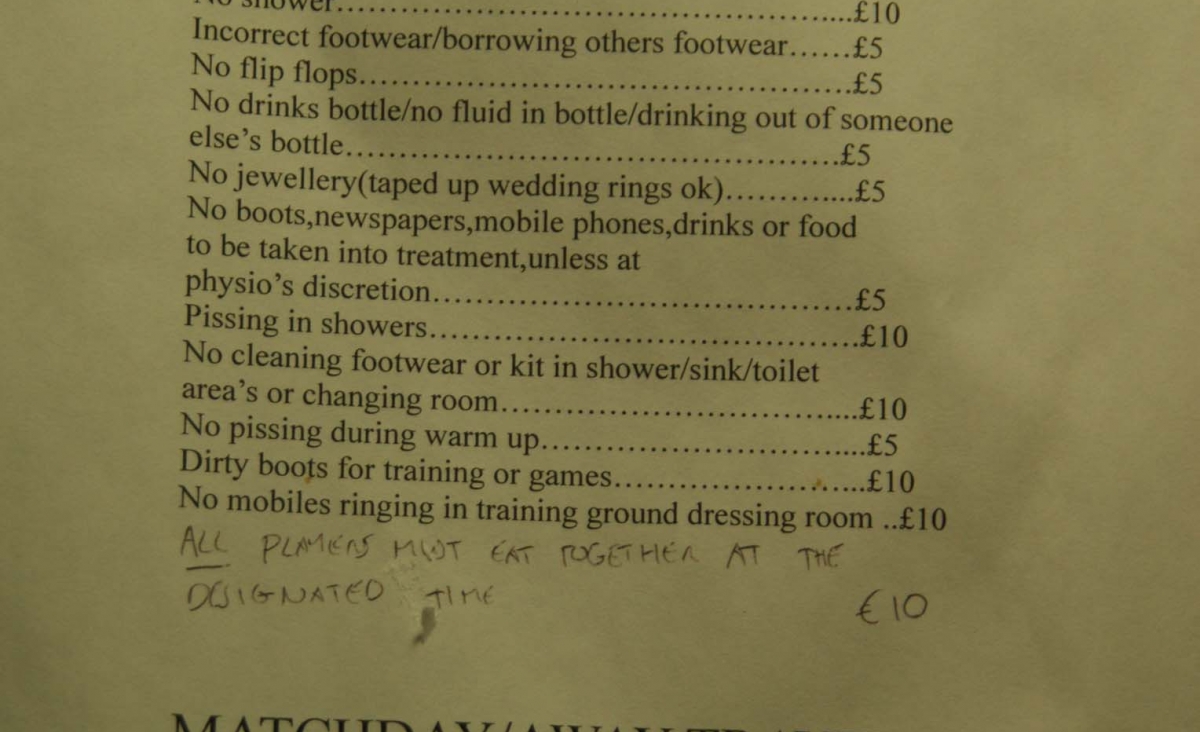 No shower.................................................................£10
Incorrect footwear/borrowing others footwear......£5
No flip flops..............................................................£5
No drinks bottle/no fluid in bottle/drinking out of someone
else's bottle..............................................................£5
No jewellery(taped up wedding rings ok)................£5
No boots,newspapers,mobile phones,drinks or food
to be taken into treatment,unless at
physio's discretion....................................................£5
Pissing in showers.....................................................£10
No cleaning footwear or kit in shower/sink/toilet
area's or changing room............................................£10
No pissing during warm up........................................£5
Dirty boots for training or games...............................£10
No mobiles ringing in training ground dressing room ..£10
ALL PLAYERS MUST EAT TOGETHER AT THE
DESIGNATED TIME £10
MATCHDAY/AWAY